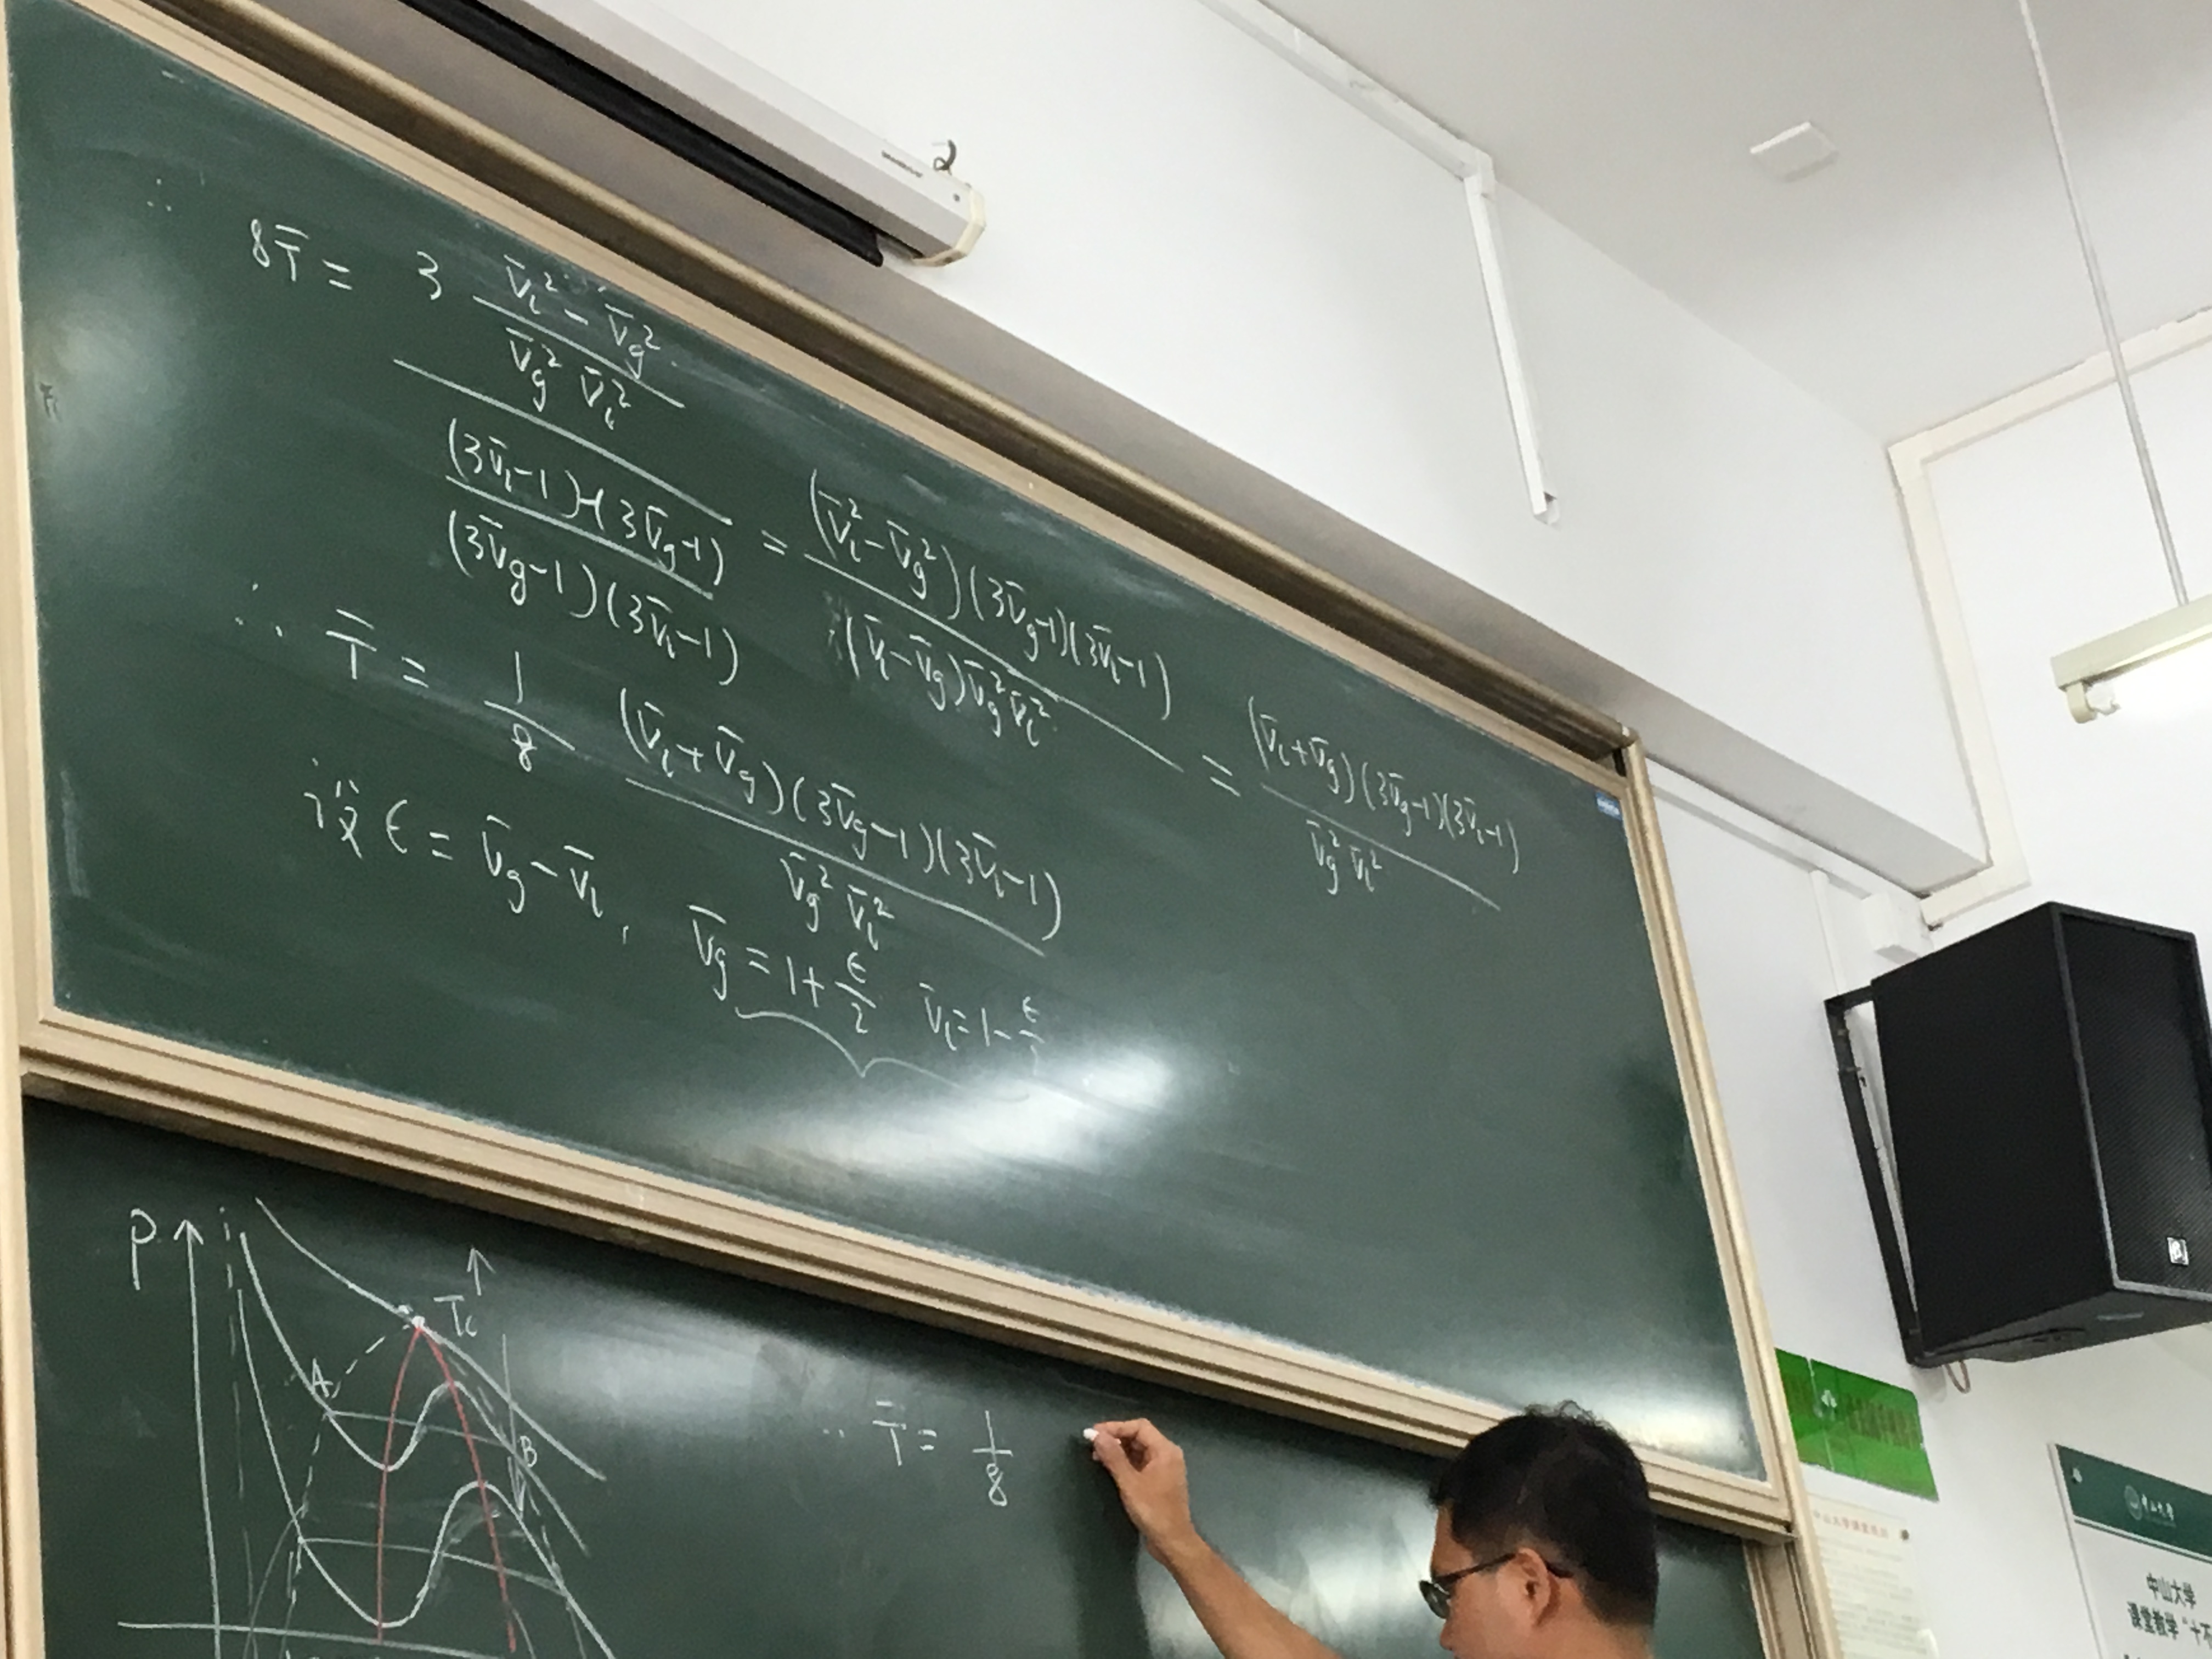 8T̄ = 3 (V̄l² − V̄g²) / (V̄g² V̄l²)
(3V̄l−1)−(3V̄g−1) / (3V̄g−1)(3V̄l−1) = (V̄l²−V̄g²)(3V̄g−1)(3V̄l−1) / (V̄l−V̄g)V̄g²V̄l² = (V̄l+V̄g)(3V̄g−1)(3V̄l−1) / V̄g² V̄l²
∴ T̄ = 1/8 (V̄l+V̄g)(3V̄g−1)(3V̄l−1) / V̄g² V̄l²
设 ϵ = V̄g−V̄l, V̄g = 1+ϵ/2 V̄l = 1−ϵ/2
P
Tc
A
B
∴ T̄ = 1/8
中山大学
中山大学
课堂教学"十不